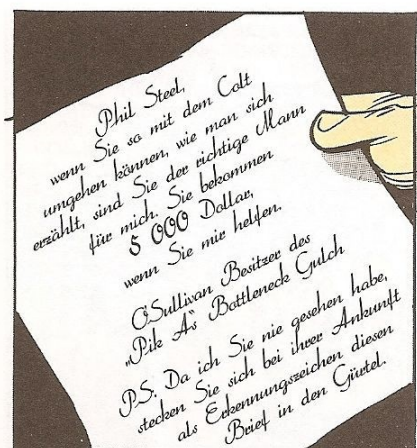 Phil Steel,
wenn Sie so mit dem Colt
umgehen können, wie man sich
erzählt, sind Sie der richtige Mann
für mich. Sie bekommen
5 000 Dollar,
wenn Sie mir helfen.
O'Sullivan Besitzer des
„Pik As“ Battleneck Gulch
P.S.: Da ich Sie nie gesehen habe,
stecken Sie sich bei ihrer Ankunft
als Erkennungszeichen diesen
Brief in den Gürtel.